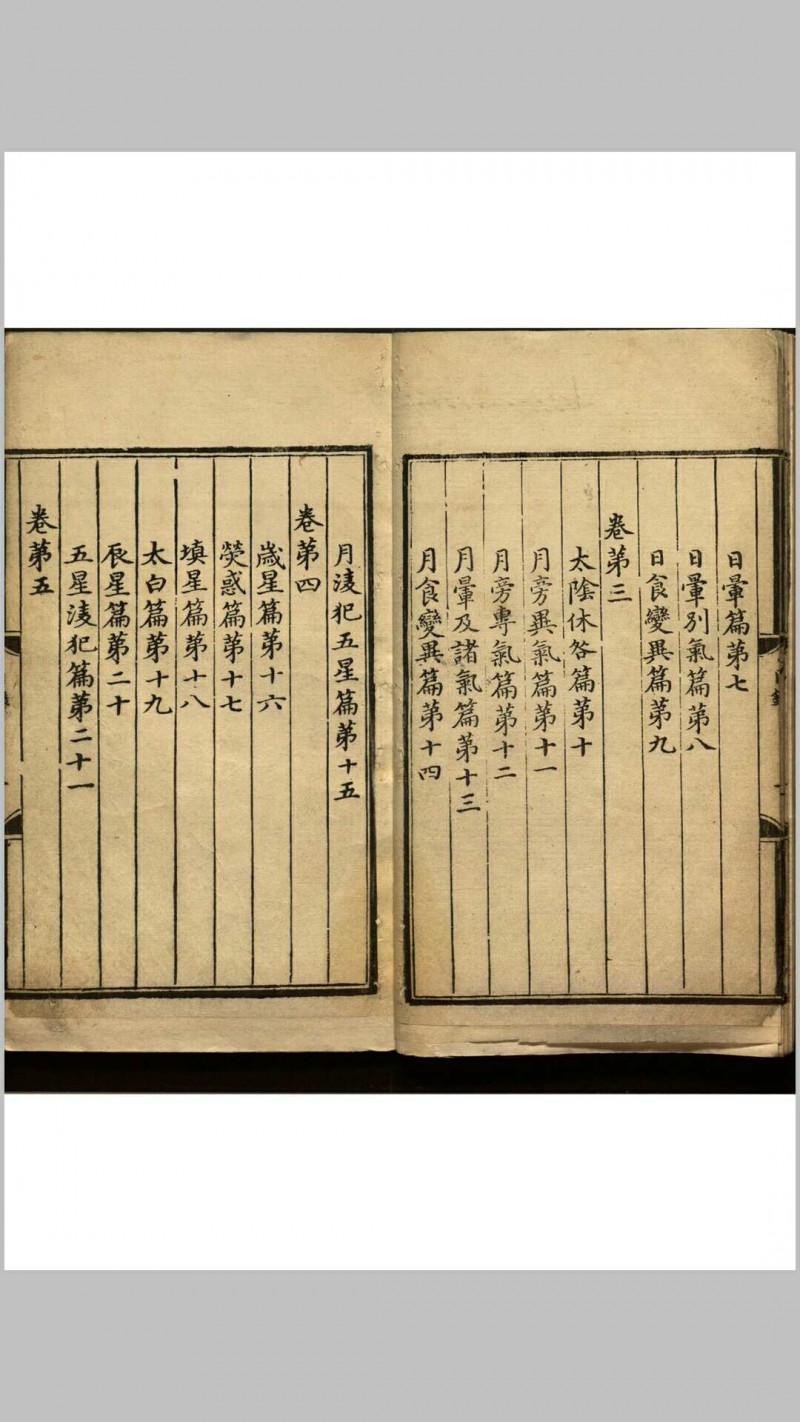 日暈篇第七
日暈別氣篇第八
日食變異篇第九
卷第三
太陰休咎篇第十
月旁異氣篇第十一
月旁專氣篇第十二
月暈及諸氣篇第十三
月食變異篇第十四
月淩犯五星篇第十五
卷第四
歲星篇第十六
熒惑篇第十七
填星篇第十八
太白篇第十九
辰星篇第二十
五星淩犯篇第二十一
卷第五